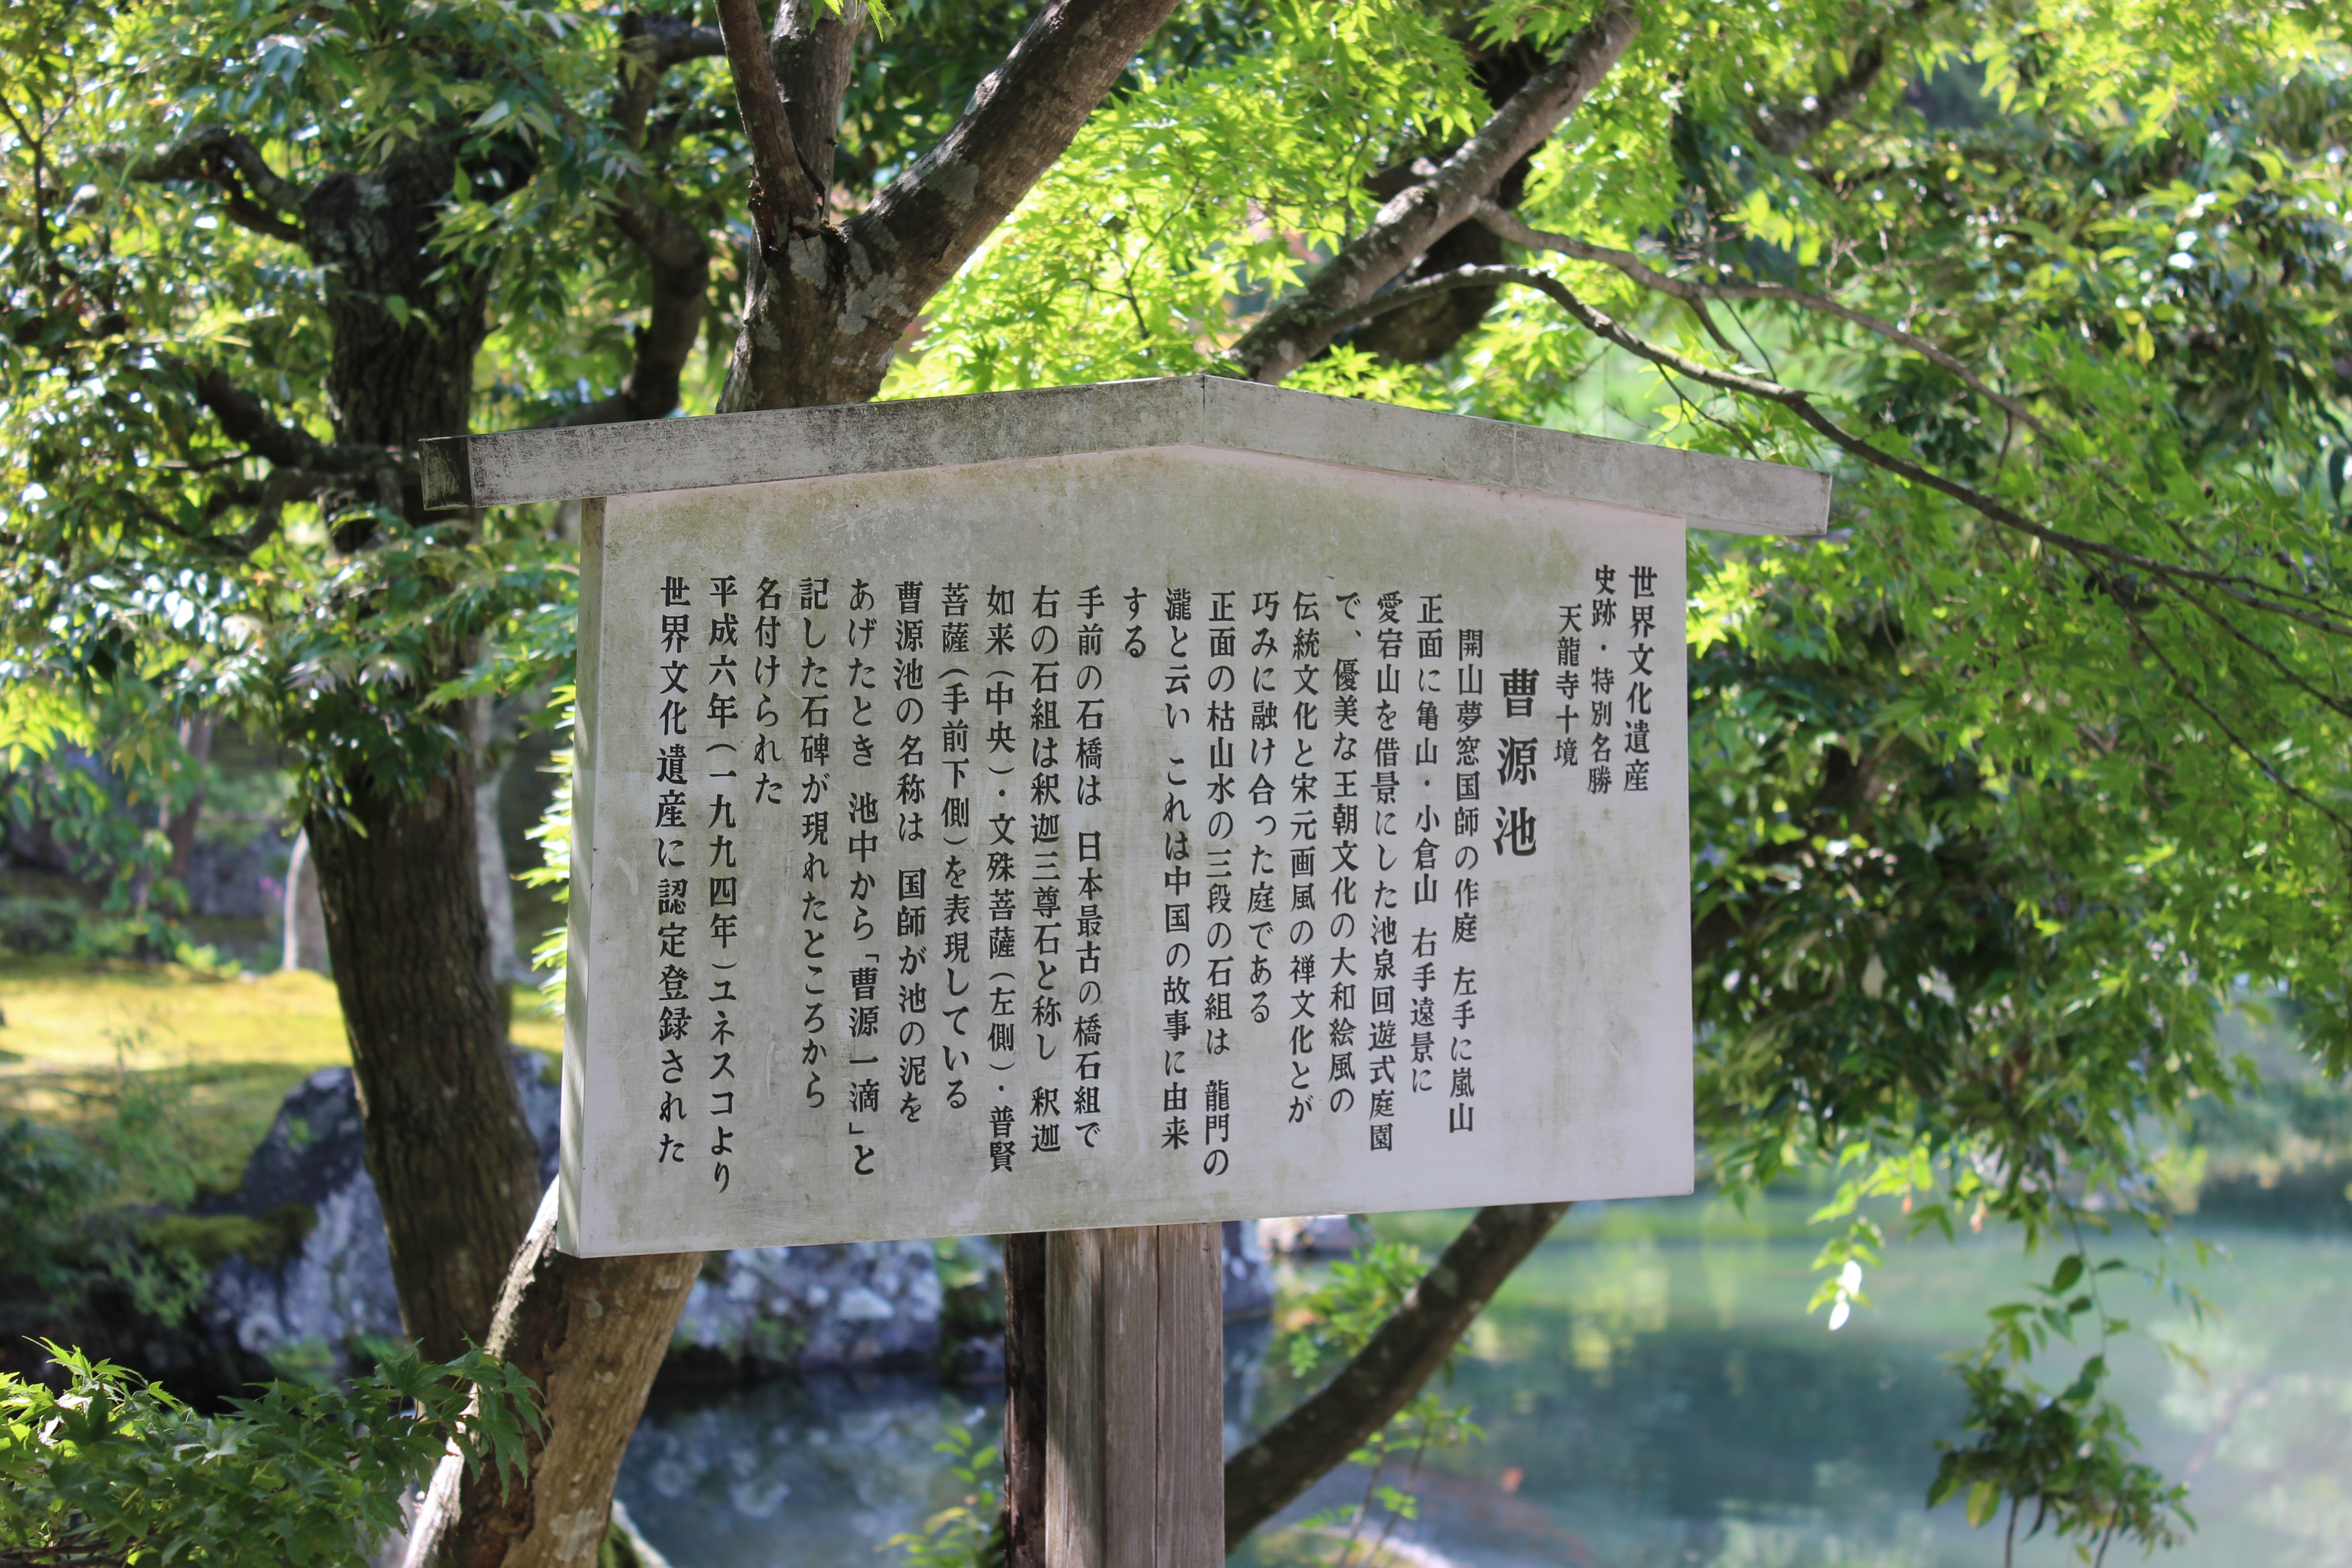 世界文化遺産
史跡・特別名勝
天龍寺十境
曹源池
開山夢窓国師の作庭 左手に嵐山
正面に亀山・小倉山 右手遠景に
愛宕山を借景にした池泉回遊式庭園
で、優美な王朝文化の大和絵風の
伝統文化と宋元画風の禅文化とが
巧みに融け合った庭である
正面の枯山水の三段の石組は 龍門の
瀧と云い これは中国の故事に由来
する
手前の石橋は 日本最古の橋石組で
右の石組は釈迦三尊石と称し 釈迦
如来（中央）・文殊菩薩（左側）・普賢
菩薩（手前下側）を表現している
曹源池の名称は 国師が池の泥を
あげたとき 池中から「曹源一滴」と
記した石碑が現れたところから
名付けられた
平成六年（一九九四年）ユネスコより
世界文化遺産に認定登録された